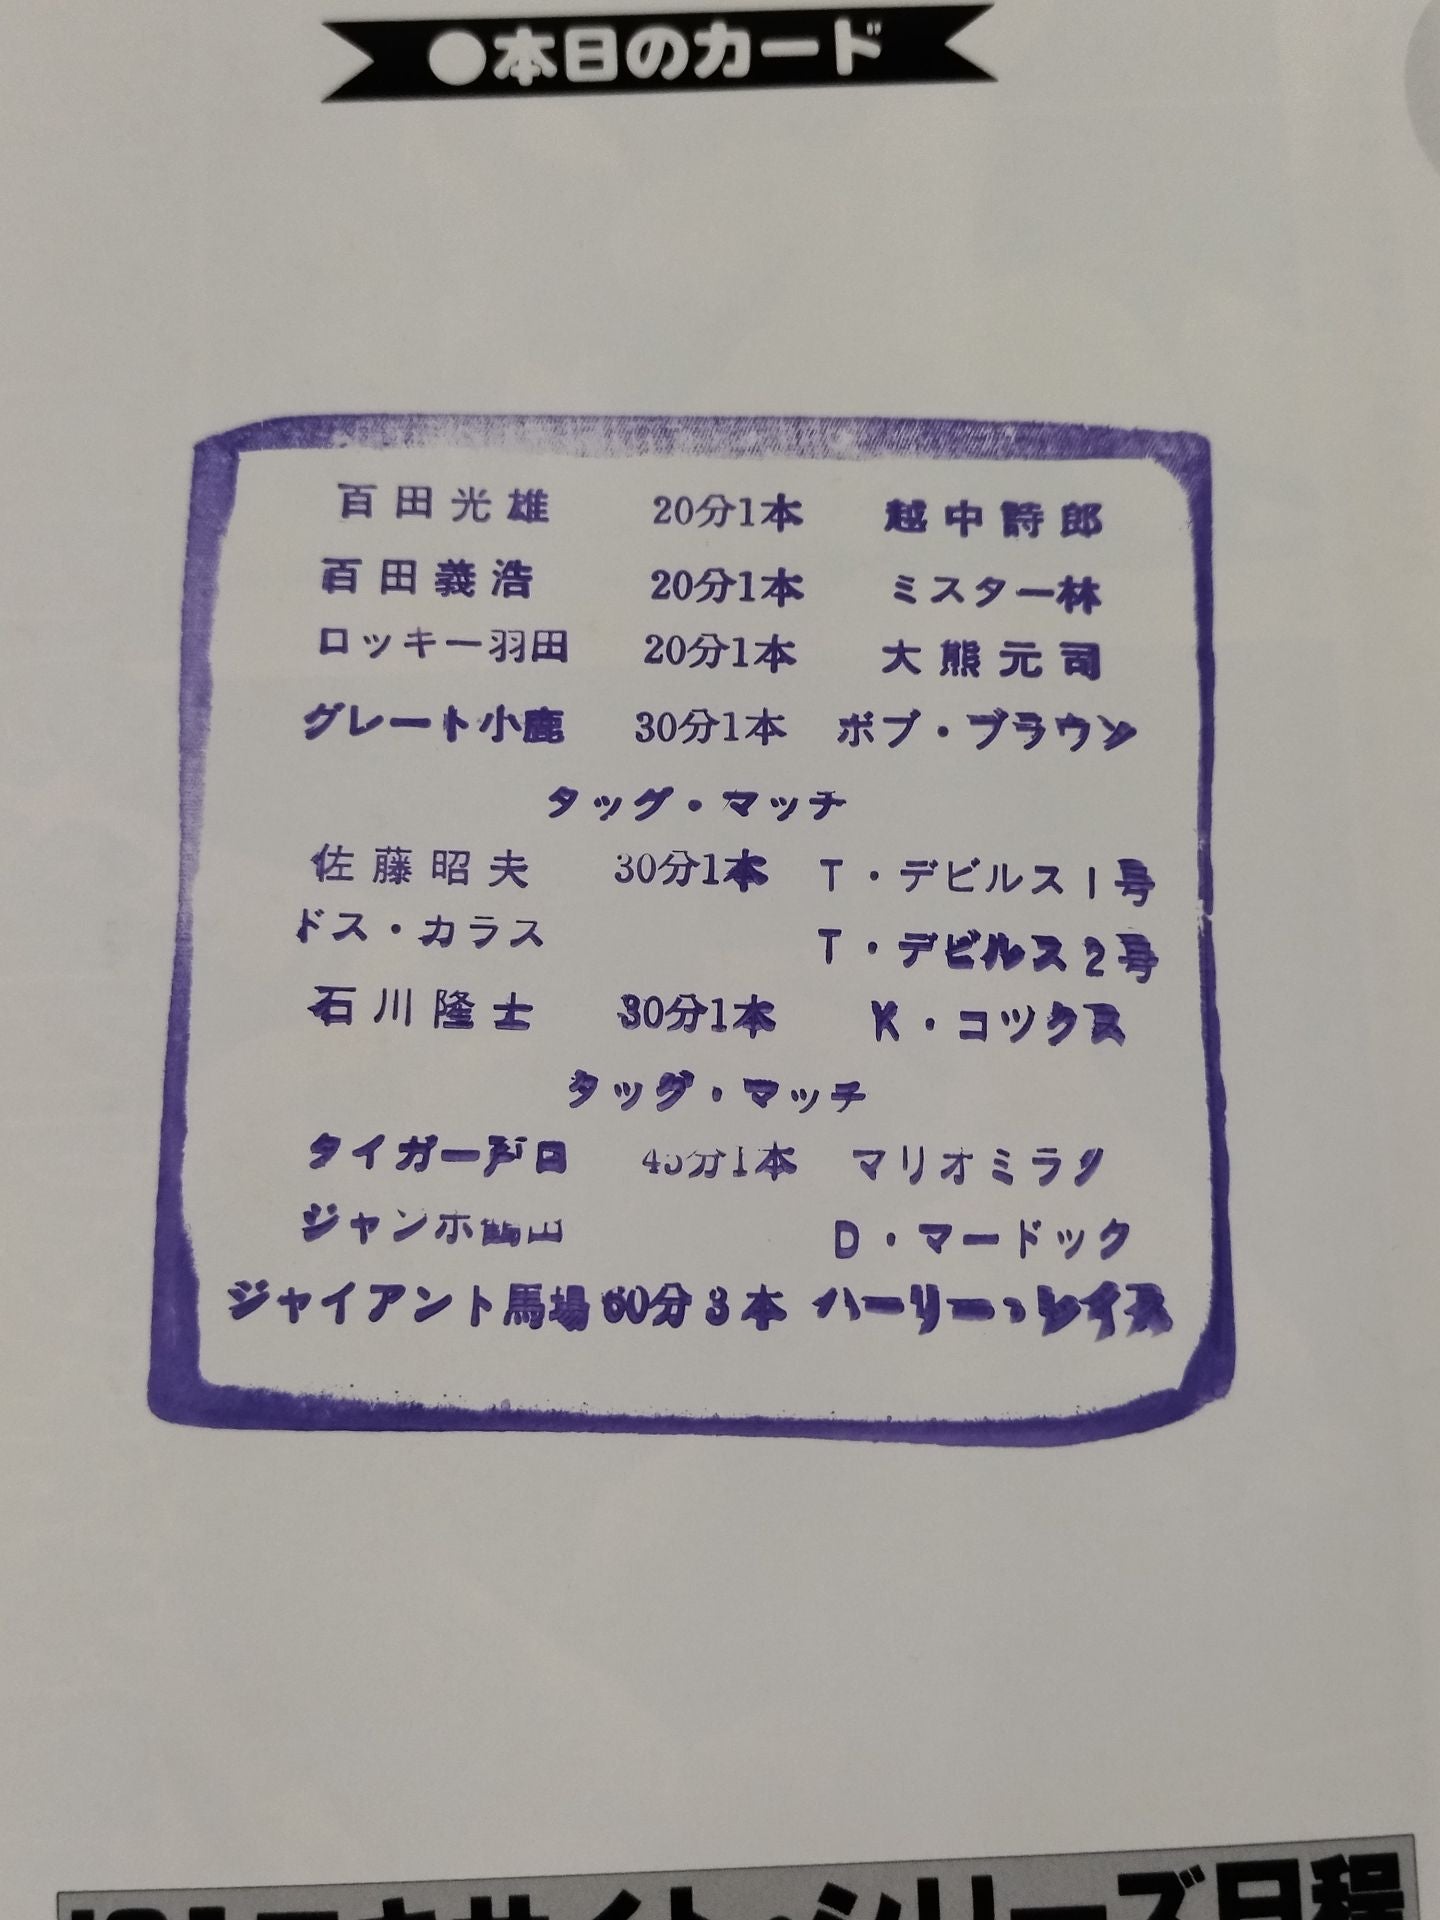 ●本日のカード
百田光雄 20分1本 越中詩郎
百田義浩 20分1本 ミスター林
ロッキー羽田 20分1本 大熊元司
グレート小鹿 30分1本 ボブ・ブラウン
タッグ・マッチ
佐藤昭夫 30分1本 T・デビルス1号
ドス・カラス T・デビルス2号
石川隆士 30分1本 K・コックス
タッグ・マッチ
タイガー戸口 45分1本 マリオミラノ
ジャンボ鶴田 D・マードック
ジャイアント馬場 60分3本 ハーリー・レイス
シリーズ日程